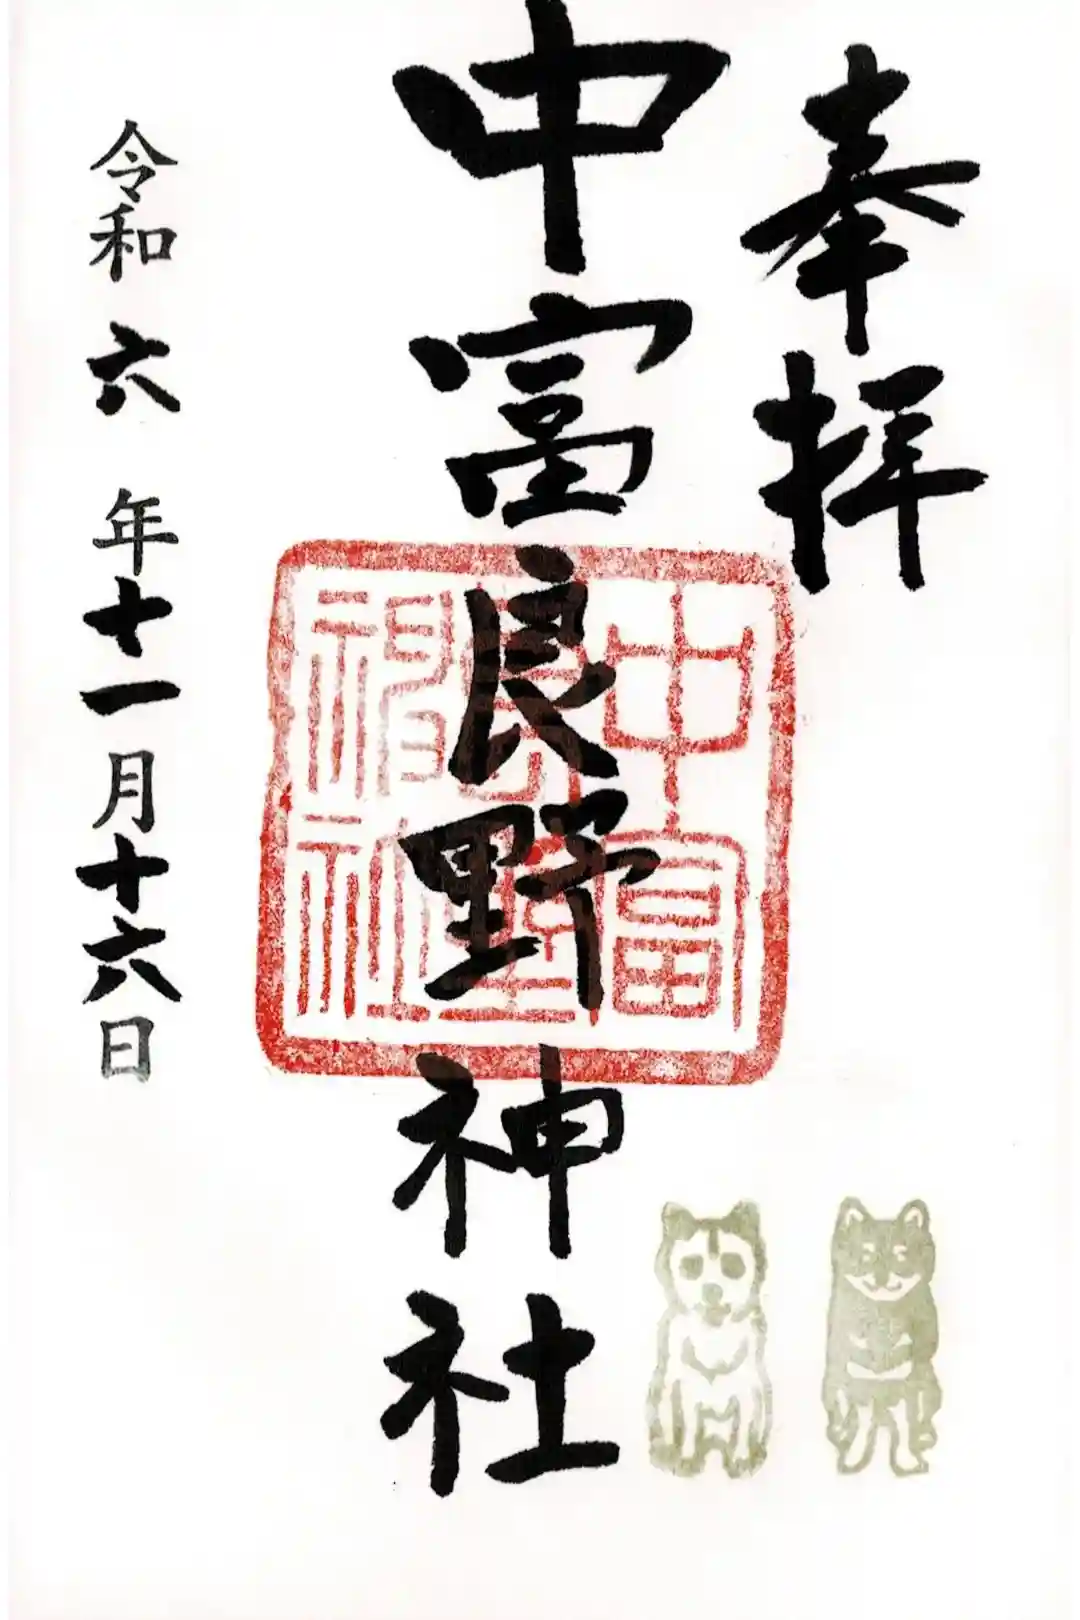 奉拝
中富良野神社
中富良野神社
令和六年十一月十六日